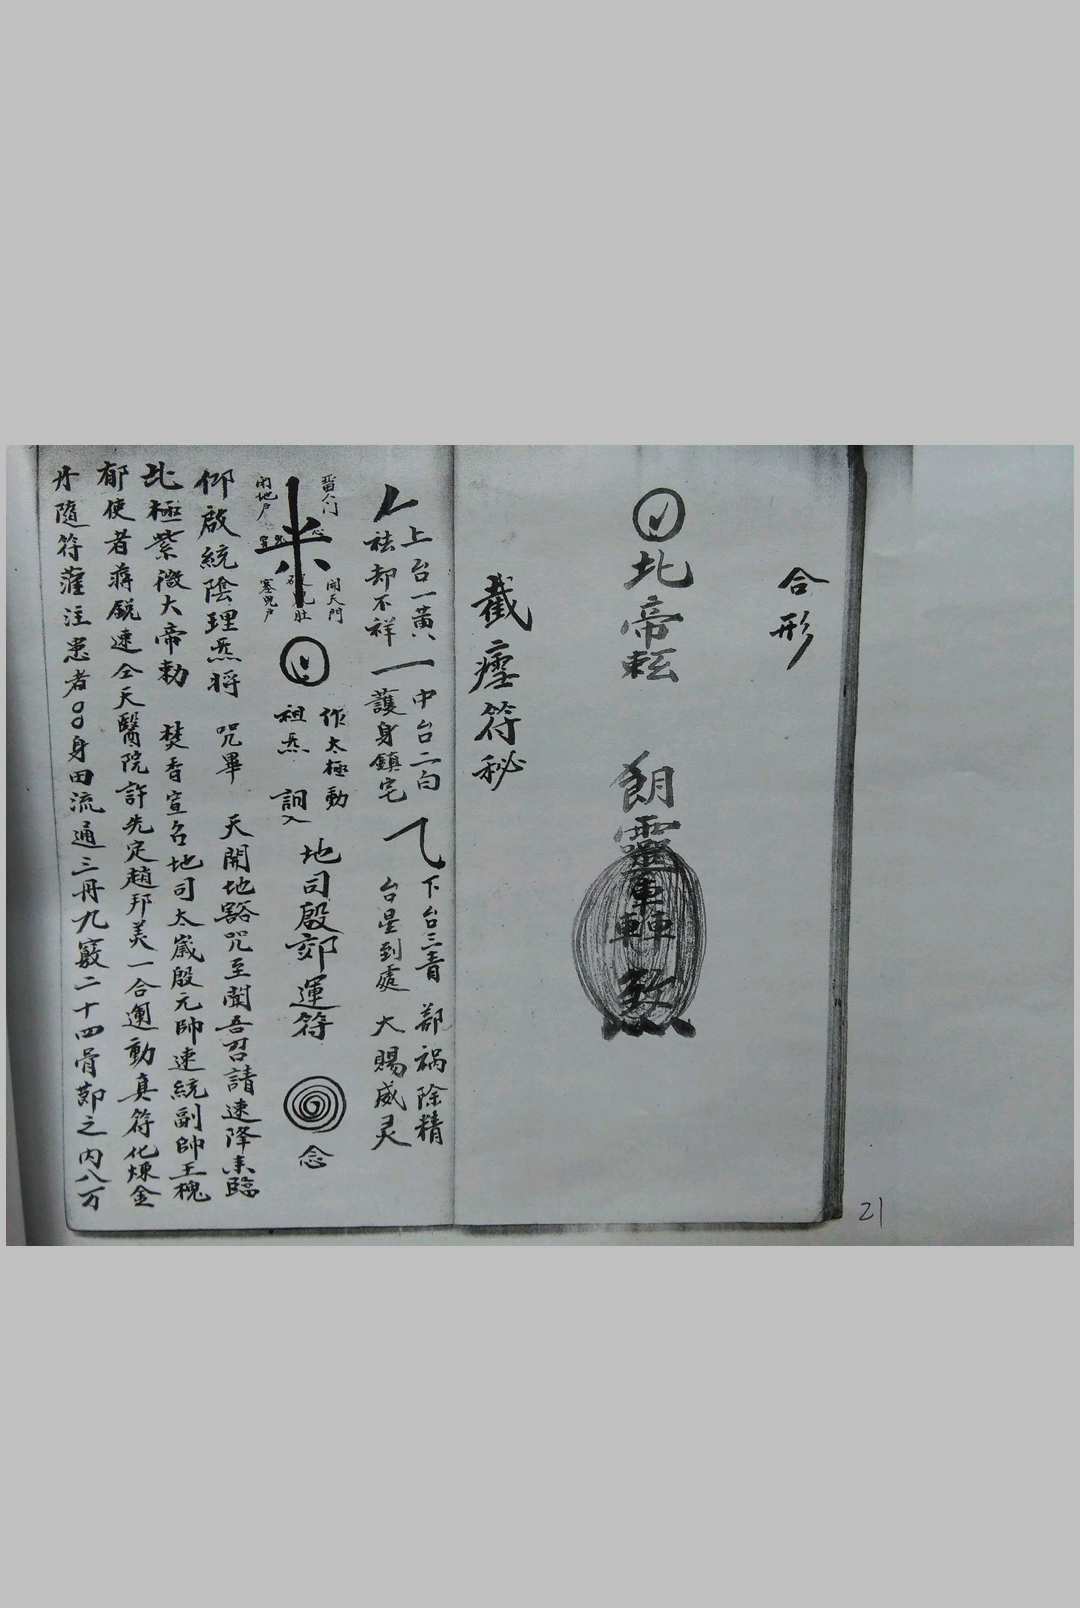 合形
北帝𫐄
朗靈
轟
敕
截瘟符秘
上台一黃
祛却不祥
中台二白
護身鎮宅
下台三青
台星到處
鄙禍除精
大賜威灵
留人门
開天門
塞鬼户
作太極動
祖炁
訶入
地司殷郊運符
念
仰啟統陰理炁将
咒畢
天開地豁咒至聞吾召請速降来臨
北極紫微大帝勅
焚香宣名地司太歲殷元帥速統副帥王槐
郁使者蔣銳速仝天醫院許先定趙邦美一合運動真符化煉金
丹隨符灌注患者
身田流通三丹九竅二十四骨節之内八万
21